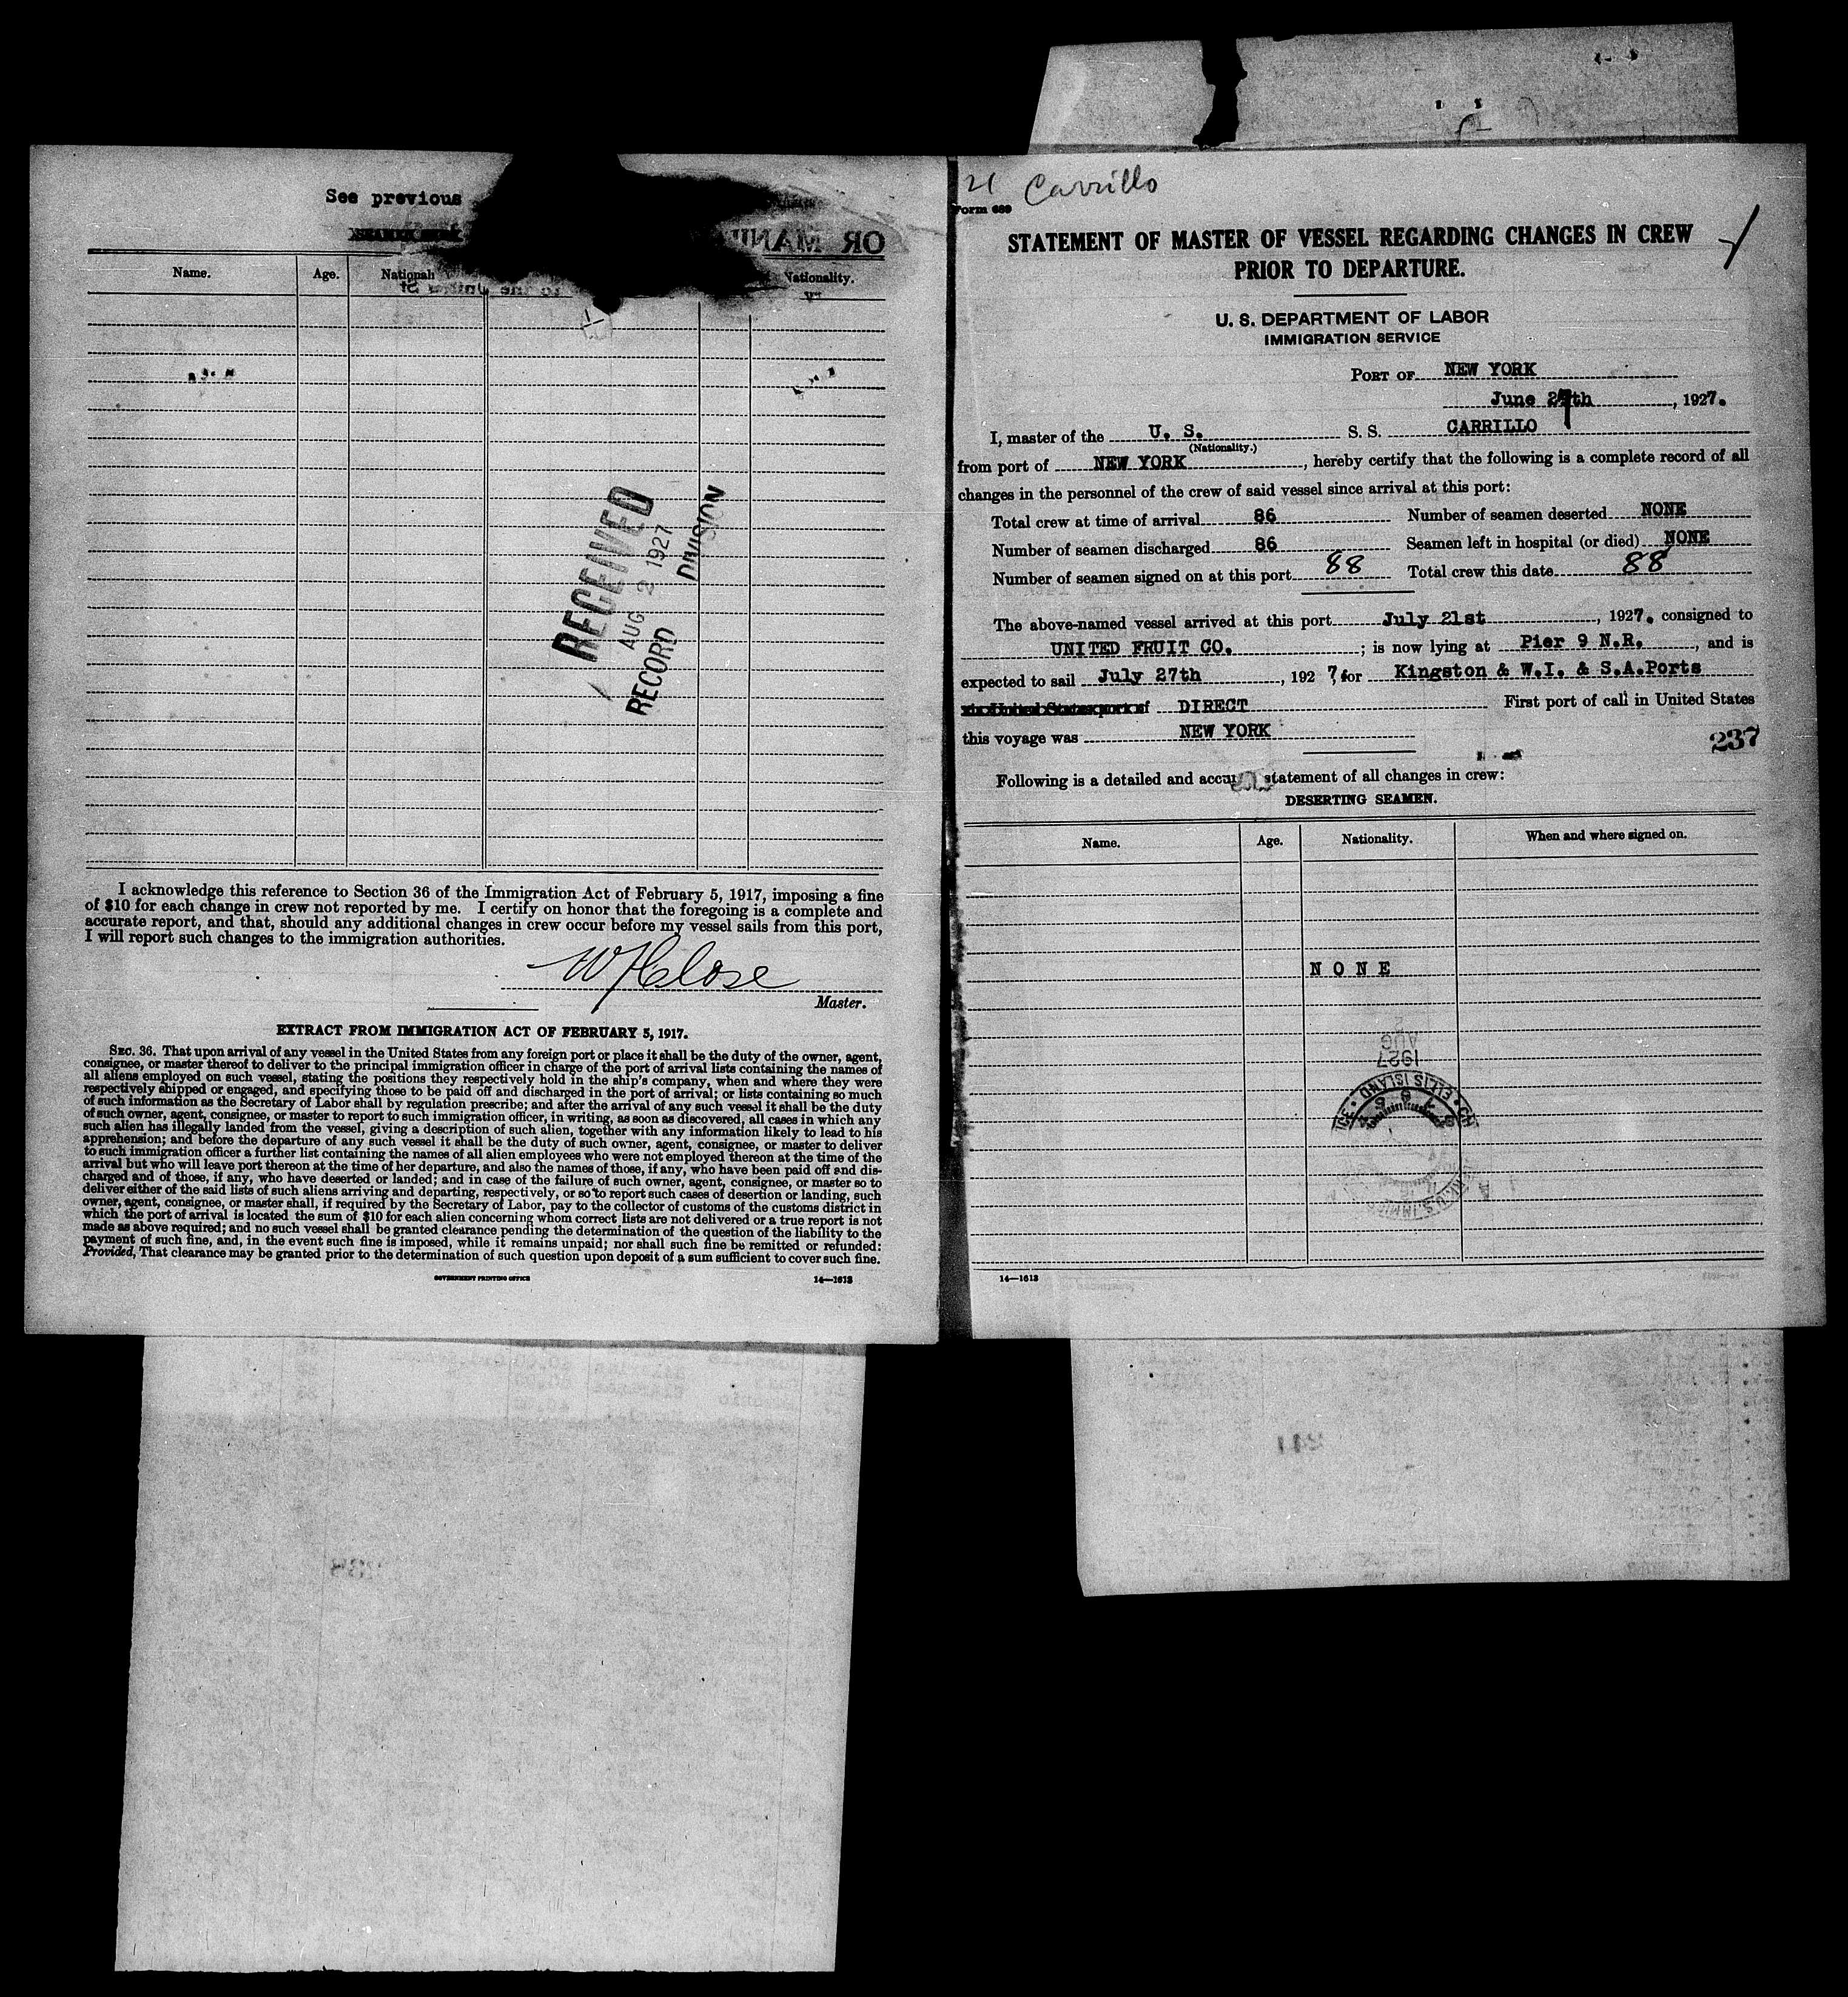 See previous
OR MANI
Name. Age. Nationali Nationality.
RECEIVED
AUG 2 1927
RECORD DIVISION
I acknowledge this reference to Section 36 of the Immigration Act of February 5, 1917, imposing a fine
of $10 for each change in crew not reported by me. I certify on honor that the foregoing is a complete and
accurate report, and that, should any additional changes in crew occur before my vessel sails from this port,
I will report such changes to the immigration authorities.
W H Close
Master.
EXTRACT FROM IMMIGRATION ACT OF FEBRUARY 5, 1917.
SEC. 36. That upon arrival of any vessel in the United States from any foreign port or place it shall be the duty of the owner, agent,
consignee, or master thereof to deliver to the principal immigration officer in charge of the port of arrival lists containing the names of
all aliens employed on such vessel, stating the positions they respectively hold in the ship's company, when and where they were
respectively shipped or engaged, and specifying those to be paid off and discharged in the port of arrival; or lists containing so much
of such information as the Secretary of Labor shall by regulation prescribe; and after the arrival of any such vessel it shall be the duty
of such owner, agent, consignee, or master to report to such immigration officer, in writing, as soon as discovered, all cases in which any
such alien has illegally landed from the vessel, giving a description of such alien, together with any information likely to lead to his
apprehension; and before the departure of any such vessel it shall be the duty of such owner, agent, consignee, or master to deliver
to such immigration officer a further list containing the names of all alien employees who were not employed thereon at the time of the
arrival but who will leave port thereon at the time of her departure, and also the names of those, if any, who have been paid off and dis-
charged and of those, if any, who have deserted or landed; and in case of the failure of such owner, agent, consignee, or master so to
deliver either of the said lists of such aliens arriving and departing, respectively, or so to report such cases of desertion or landing, such
owner, agent, consignee, or master shall, if required by the Secretary of Labor, pay to the collector of customs of the customs district in
which the port of arrival is located the sum of $10 for each alien concerning whom correct lists are not delivered or a true report is not
made as above required; and no such vessel shall be granted clearance pending the determination of the question of the liability to the
payment of such fine, and, in the event such fine is imposed, while it remains unpaid; nor shall such fine be remitted or refunded:
Provided, That clearance may be granted prior to the determination of such question upon deposit of a sum sufficient to cover such fine.
GOVERNMENT PRINTING OFFICE 14—1613
21 Carrillo
Form 689
STATEMENT OF MASTER OF VESSEL REGARDING CHANGES IN CREW
PRIOR TO DEPARTURE.
U. S. DEPARTMENT OF LABOR
IMMIGRATION SERVICE
PORT OF NEW YORK
June 27th, 1927.
I, master of the U. S. S. S. CARRILLO
(Nationality.)
from port of NEW YORK, hereby certify that the following is a complete record of all
changes in the personnel of the crew of said vessel since arrival at this port:
Total crew at time of arrival 86 Number of seamen deserted NONE
Number of seamen discharged 86 Seamen left in hospital (or died) NONE
Number of seamen signed on at this port 88 Total crew this date 88
The above-named vessel arrived at this port July 21st, 1927. consigned to
UNITED FRUIT CO.; is now lying at Pier 9 N.R., and is
expected to sail July 27th, 1927, for Kingston & W.I. & S.A.Ports
via United States port of DIRECT First port of call in United States
this voyage was NEW YORK
237
Following is a detailed and accu statement of all changes in crew:
DESERTING SEAMEN.
Name. Age. Nationality. When and where signed on.
N O N E
AUG
1927
ELLIS ISLAND
14—1613